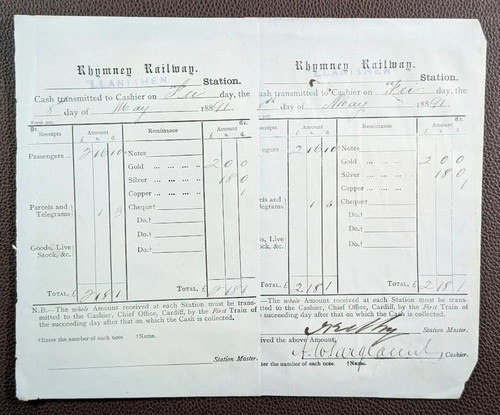 Rhymney Railway.
LLANISHEN Station.
Cash transmitted to Cashier on Fri day, the
8 day of May 1891
Dr. Cr.
Receipts Amount £ s. d. Remittance Amount
Passengers .. 2 16 10 Notes
Gold ... ... ... 2 0 0
Silver ... ... ... 18 0
Copper ... ... 1
Parcels and Telegrams } 1 3 Cheque†
Do.†
Do.†
Goods, Live Stock, &c. } Do.†
TOTAL, £ 2 18 1 TOTAL £ 2 18 1
N.B.—The whole Amount received at each Station must be trans-
mitted to the Cashier, Chief Office, Cardiff, by the First Train of
the succeeding day after that on which the Cash is collected.
*Enter the number of each note. †Name.
Station Master.
Rhymney Railway.
LLANISHEN Station.
Cash transmitted to Cashier on Fri day, the
8th day of May 1891
Dr. Cr.
Amount £ s. d. Remittance Amount
ssengers .. 2 16 10 *Notes
Gold ... ... ... 2 0 0
Silver ... ... ... 18 0
Copper ... ... 1
cels and Telegrams } 1 3 Cheque†
Do.†
Do.†
ds, Live Stock, &c. } Do.†
TOTAL, £ 2 18 1 TOTAL £ 2 18 1
—The whole Amount received at each Station must be trans-
mitted to the Cashier, Chief Office, Cardiff, by the First Train of
the succeeding day after that on which the Cash is collected.
Station Master.
ived the above Amount,
Cashier.
ter the number of each note. †Name.